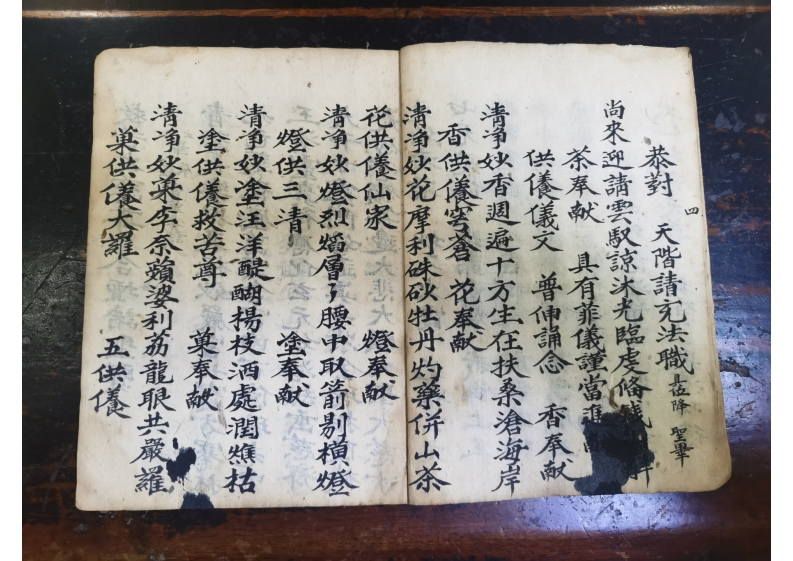 四
恭對 天階請宣法職 具位降 聖畢
尚來迎請雲馭諒沐光臨虔備
茶奉献 具有菲儀謹當進
供養儀文 曾伸誦念 香奉献
清净妙香週遍十方生在扶桑滄海岸
香供養穹蒼 花奉献
清净妙花摩利硃砂牡丹灼藥併山茶
花供養仙家 燈奉献
清净妙燈烈焰層〻腰中取箭剔横燈
燈供三清 塗奉献
清净妙塗汪洋醍醐揚枝洒處潤燋枯
塗供養救苦尊 菓奉献
清净妙菓李奈蘋婆利荔龍眼共嚴羅
菓供養大羅 五供養